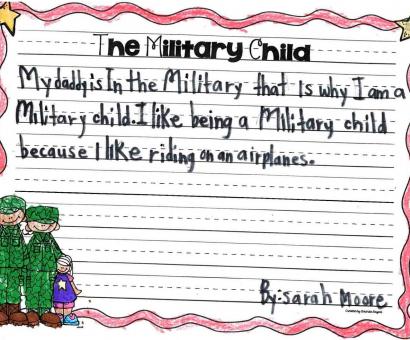 The Military Child
My daddy is In the Military that is why I am a
Military child. I like being a Military child
because I like riding on an airplanes.
By: sarah Moore